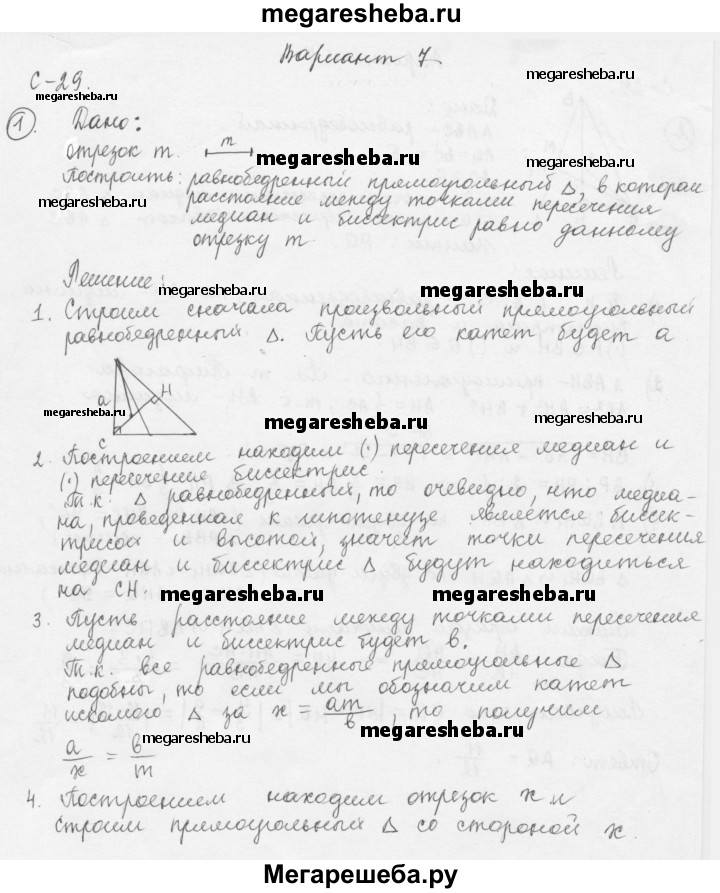 megaresheba.ru
Вариант 7
С-29.
megaresheba.ru
megaresheba.ru
1. Дано:
отрезок m. m
megaresheba.ru
megaresheba.ru
Построить: равнобедренный прямоугольный Δ, в котором
расстояние между точками пересечения
медиан и биссектрис равно данному
отрезку m
megaresheba.ru
megaresheba.ru
Решение:
megaresheba.ru
1. Строим сначала произвольный прямоугольный
равнобедренный Δ. Пусть его катет будет a
a H C
megaresheba.ru
megaresheba.ru
2. Построением находим (·) пересечения медиан и
(·) пересечения биссектрис.
Т.к. Δ равнобедренный, то очевидно, что медиа-
на, проведенная к гипотенузе является биссек-
трисой и высотой, значит точки пересечения
медиан и биссектрис Δ будут находиться
на CH.
megaresheba.ru
megaresheba.ru
3. Пусть расстояние между точками пересечения
медиан и биссектрис будет b.
Т.к. все равнобедренные прямоугольные Δ
подобны, то если мы обозначим катет
искомого Δ за x = am/b, то получим
a/x = b/m
megaresheba.ru
megaresheba.ru
4. Построением находим отрезок x и
строим прямоугольный Δ со стороной x.
Мегарешеба.ру